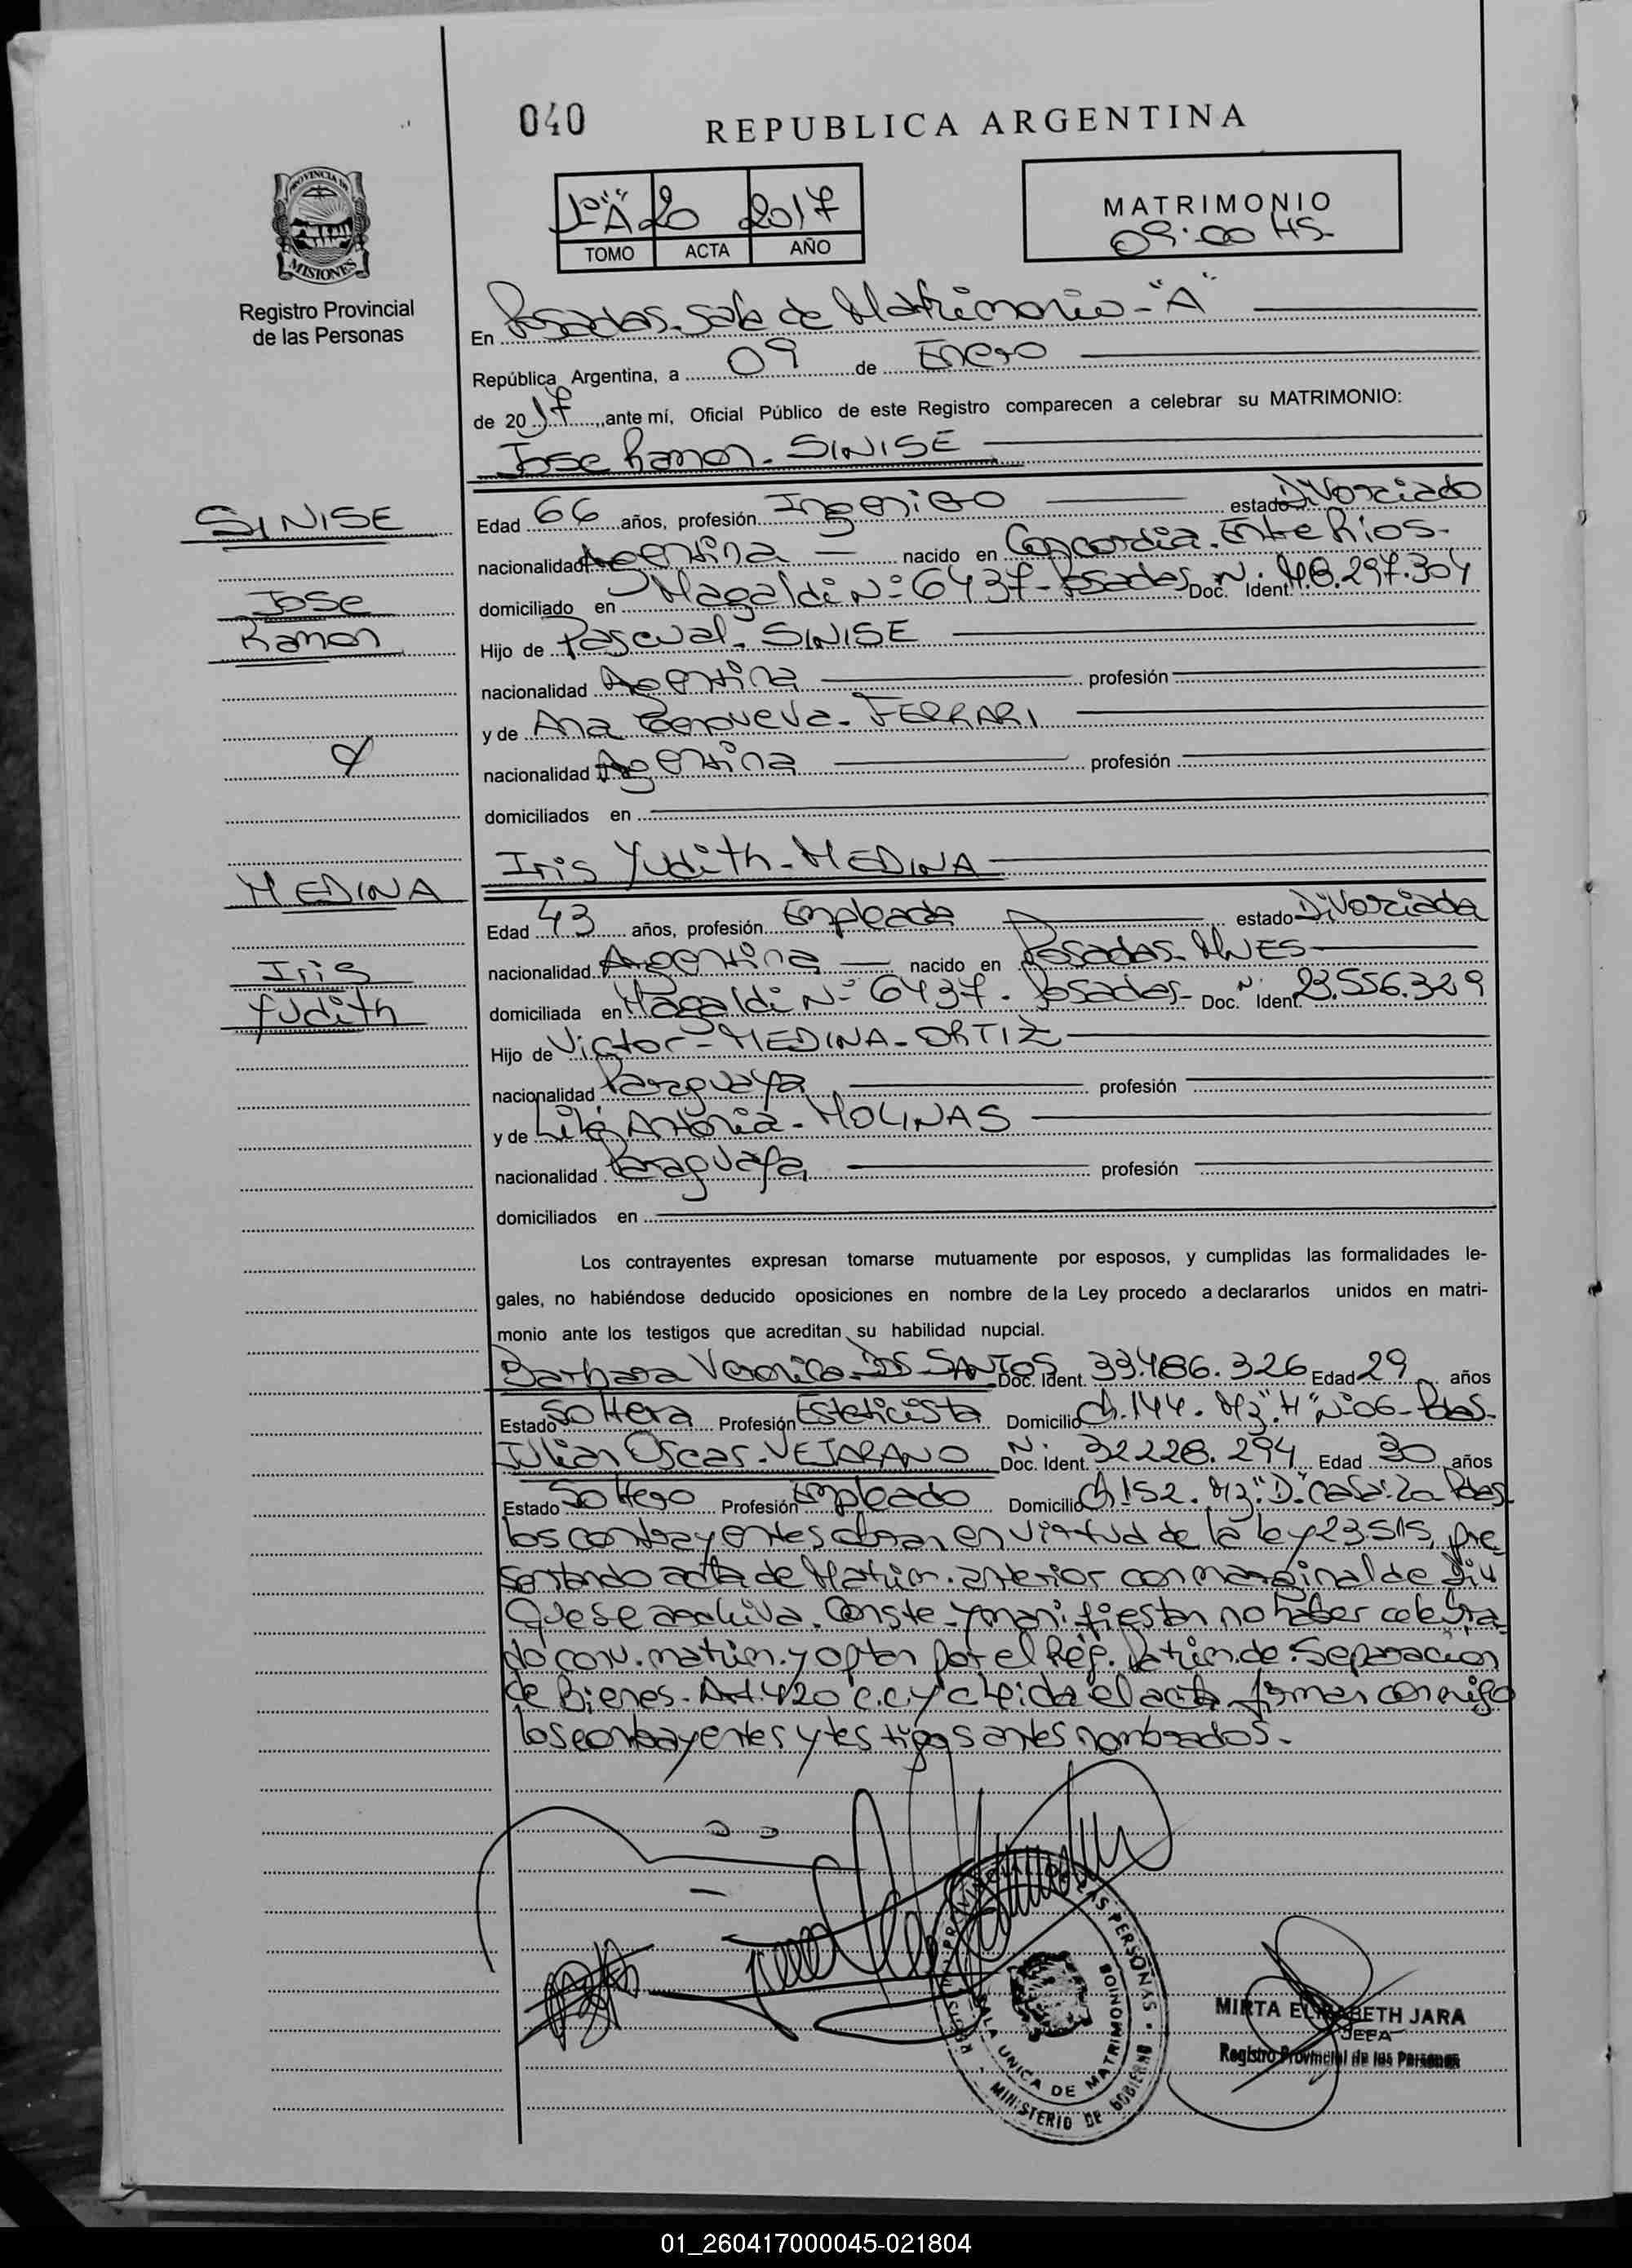 040
REPUBLICA ARGENTINA
PROVINCIA DE
MISIONES
Registro Provincial
de las Personas
1º "A" 20 2017
TOMO ACTA AÑO
MATRIMONIO
09:00 HS-
En Posadas. Sala de Matrimonio - "A"
República Argentina, a 09 de Enero
de 2017, ante mí, Oficial Público de este Registro comparecen a celebrar su MATRIMONIO:
Jose Ramon. SINISE
SINISE
Jose
Ramon
Edad 66 años, profesión Ingeniero estado Divorciado
nacionalidad Argentina nacido en Concordia. Entre Rios.
domiciliado en Magaldi Nº 6437 - Posadas Doc. Ident. N: M.8.297.304
Hijo de Pascual. SINISE
nacionalidad Argentina profesión
y de Ana Genoveva. FERRARI
nacionalidad Argentina profesión
domiciliados en
Iris Yudith - MEDINA
MEDINA
Iris
Yudith
Edad 43 años, profesión Empleada estado Divorciada
nacionalidad Argentina nacido en Posadas. MNES
domiciliada en Magaldi Nº 6437. Posadas - Doc. Ident. N: 23.556.329
Hijo de Victor - MEDINA - ORTIZ
nacionalidad Paraguaya profesión
y de Antonia - MOLINAS
nacionalidad Paraguaya profesión
domiciliados en
Los contrayentes expresan tomarse mutuamente por esposos, y cumplidas las formalidades le-
gales, no habiéndose deducido oposiciones en nombre de la Ley procedo a declararlos unidos en matri-
monio ante los testigos que acreditan su habilidad nupcial.
Barbara Veronica DOS SANTOS Doc. Ident. 33.486.326 Edad 29 años
Estado Soltera Profesión Esteticista Domicilio Ch.144. Mz "H" Nº 06 - Pdas.
Julian Oscar. VEJARANO Doc. Ident. N. 32.228.294 Edad 30 años
Estado Soltero Profesión Empleado Domicilio Ch 152. Mz. "D". casa: 20 Pdas.
los contrayentes obran en virtud de la ley 23.515, pre
sentando acta de Matrim. anterior con marginal de Div
que se archiva. Conste y manifiestan no haber celebra
do conv. matrim. y optan por el Rég. Patrim. de: Separacion
de Bienes. Art. 420 C.C. y C Leida el acta firman conmigo
los contrayentes y testigos antes nombrados.
SALA UNICA DE MATRIMONIOS
MINISTERIO DE GOBIERNO
MIRTA ELISABETH JARA
JEFA
Registro Provincial de las Personas
01_260417000045-021804